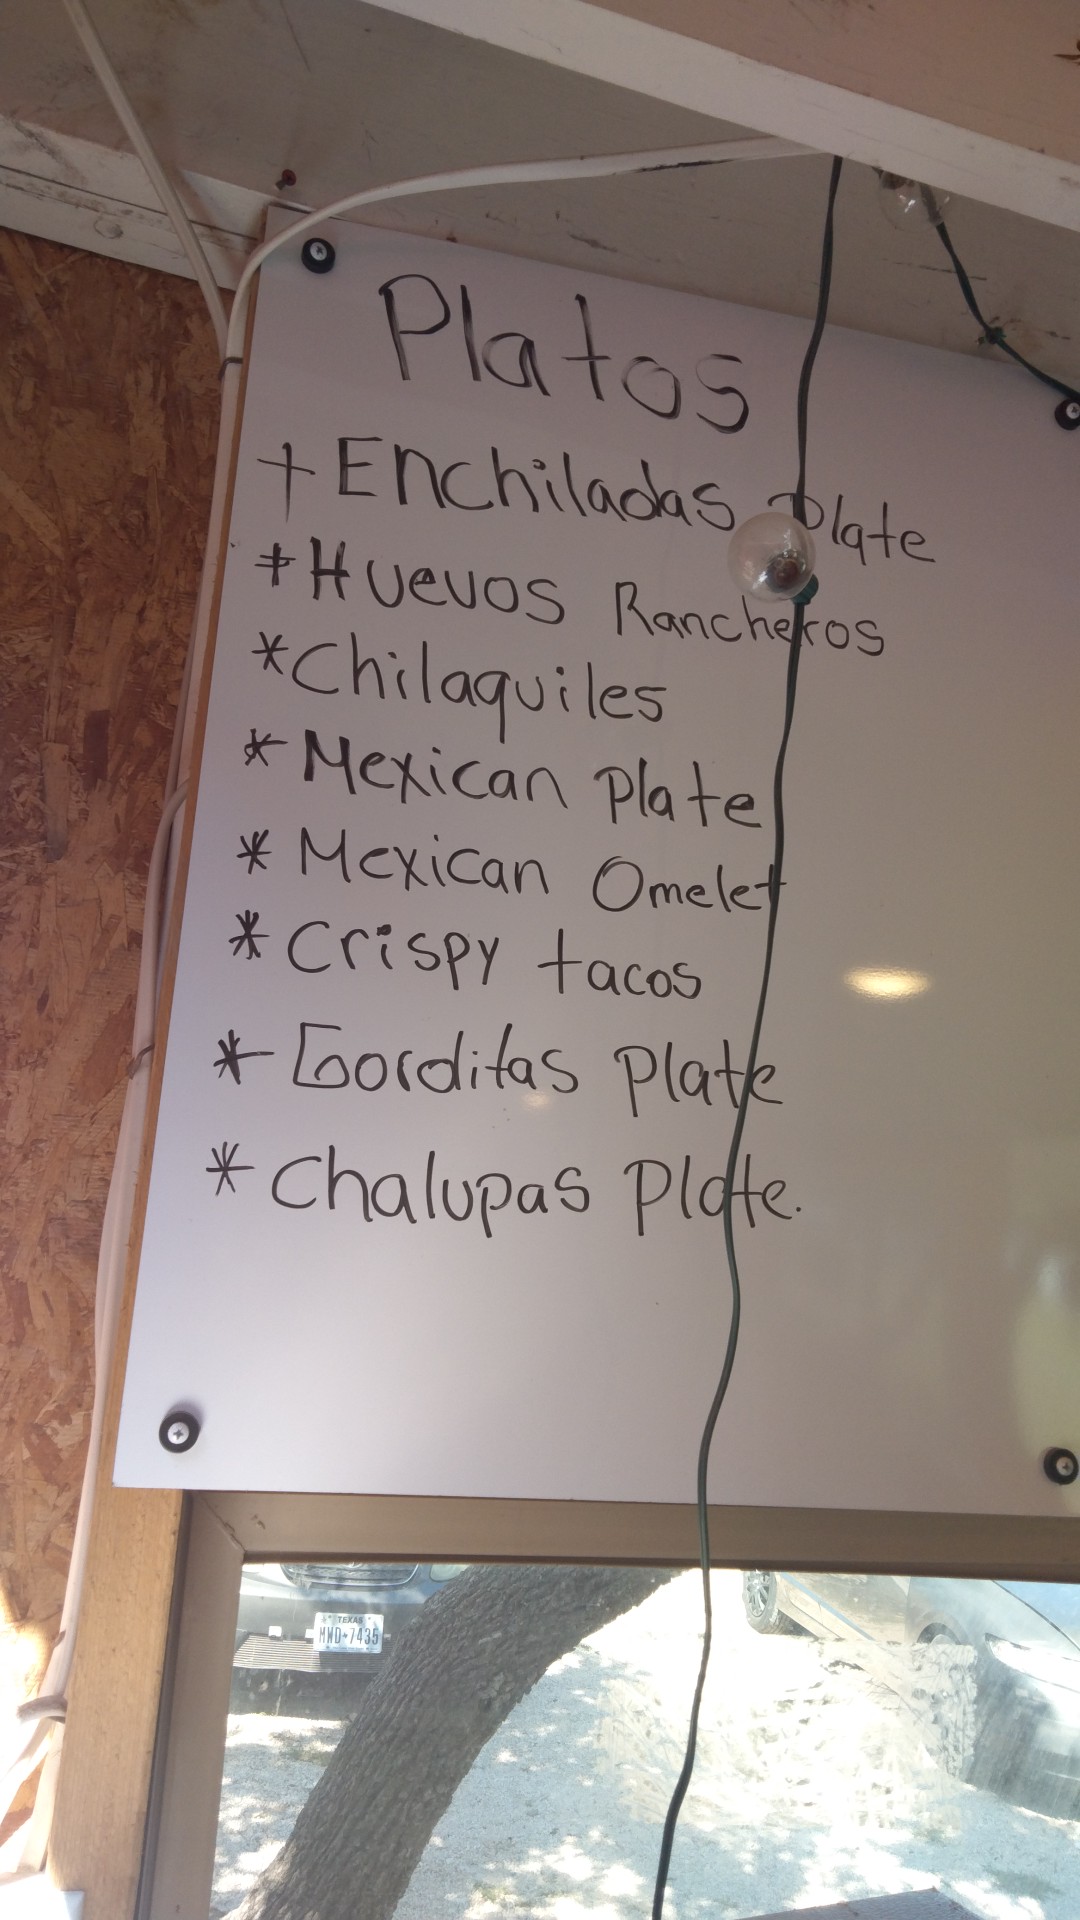 Platos
+ Enchiladas Plate
+ Huevos Rancheros
* Chilaquiles
* Mexican Plate
* Mexican Omelet
* Crispy tacos
* Gorditas Plate
* Chalupas Plate.
TEXAS
MWD-7435